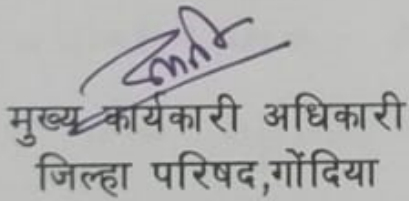 मुख्य कार्यकारी अधिकारी
जिल्हा परिषद,गोंदिया